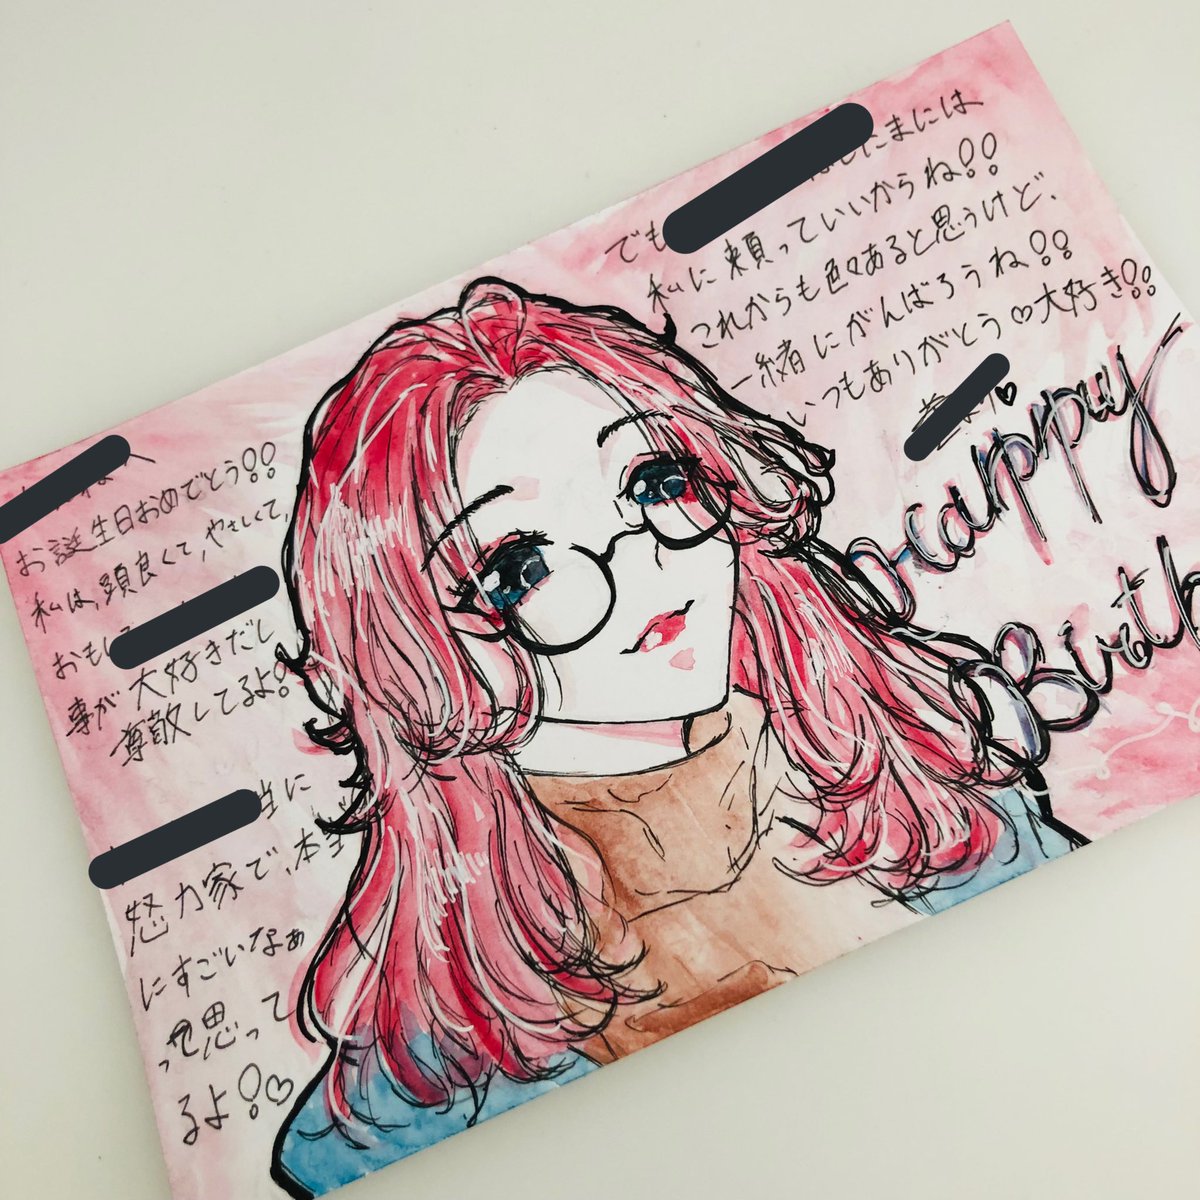 お誕生日おめでとう!!
私は、頭良くて、やさしくて、
おもし
事が大好きだし
尊敬してるよ!
当に
努力家で、本当
にすごいなぁ
って思って
るよ!♡
でも
たまには
私に頼っていいからね!!
これからも色々あると思うけど、
一緒にがんばろうね!!
いつもありがとう♡大好き!!
Happy
Birth